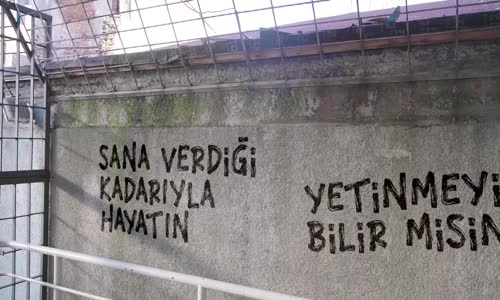 SANA VERDİĞİ
KADARIYLA
HAYATIN
YETİNMEYİ
BİLİR MİSİN